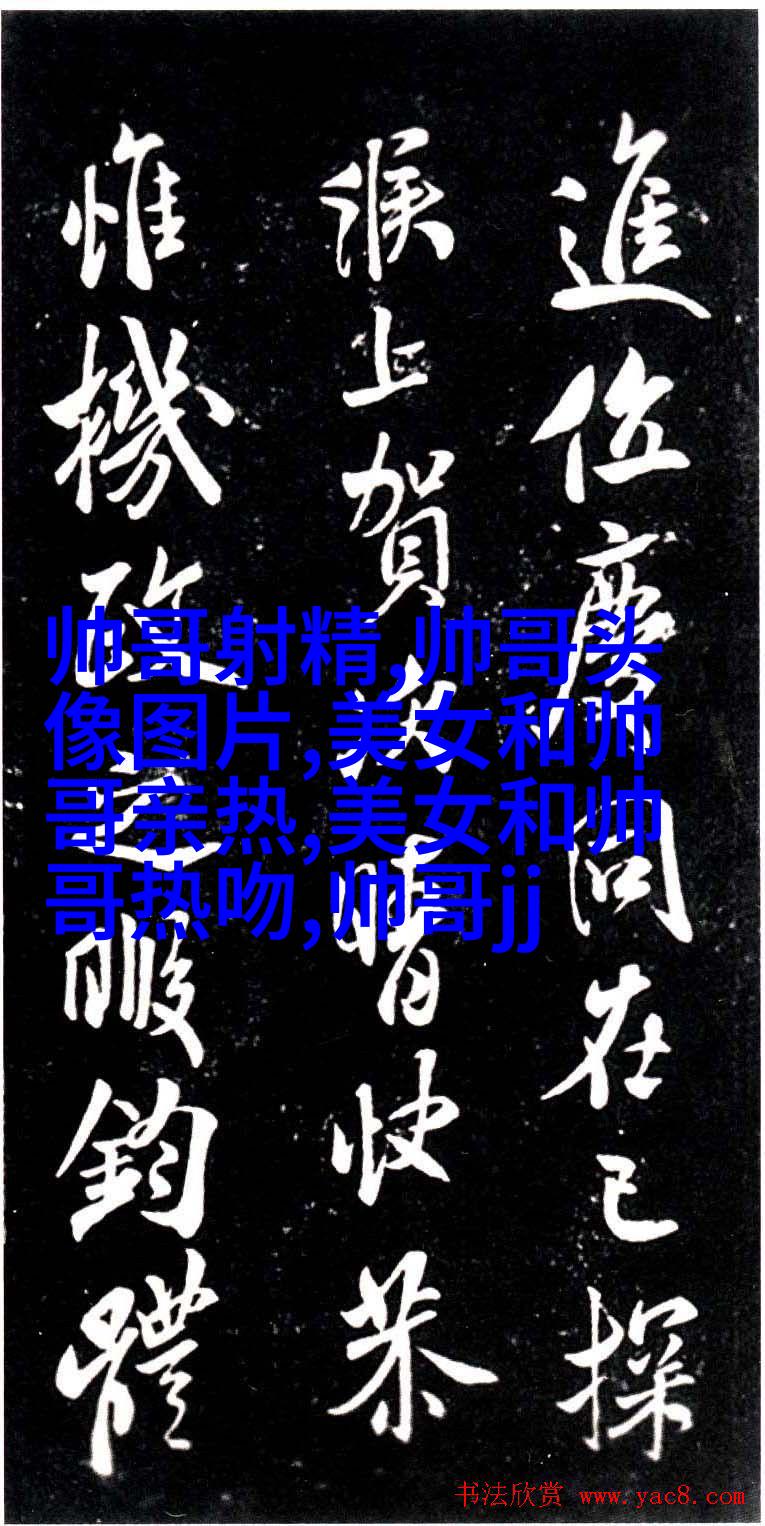 進位慶同在己探
上賀晴快恭
惟機政之暇鈞體
帅哥射精,帅哥头
像图片,美女和帅
哥亲热,美女和帅
哥热吻,帅哥jj
书法欣赏 www.yac8.com